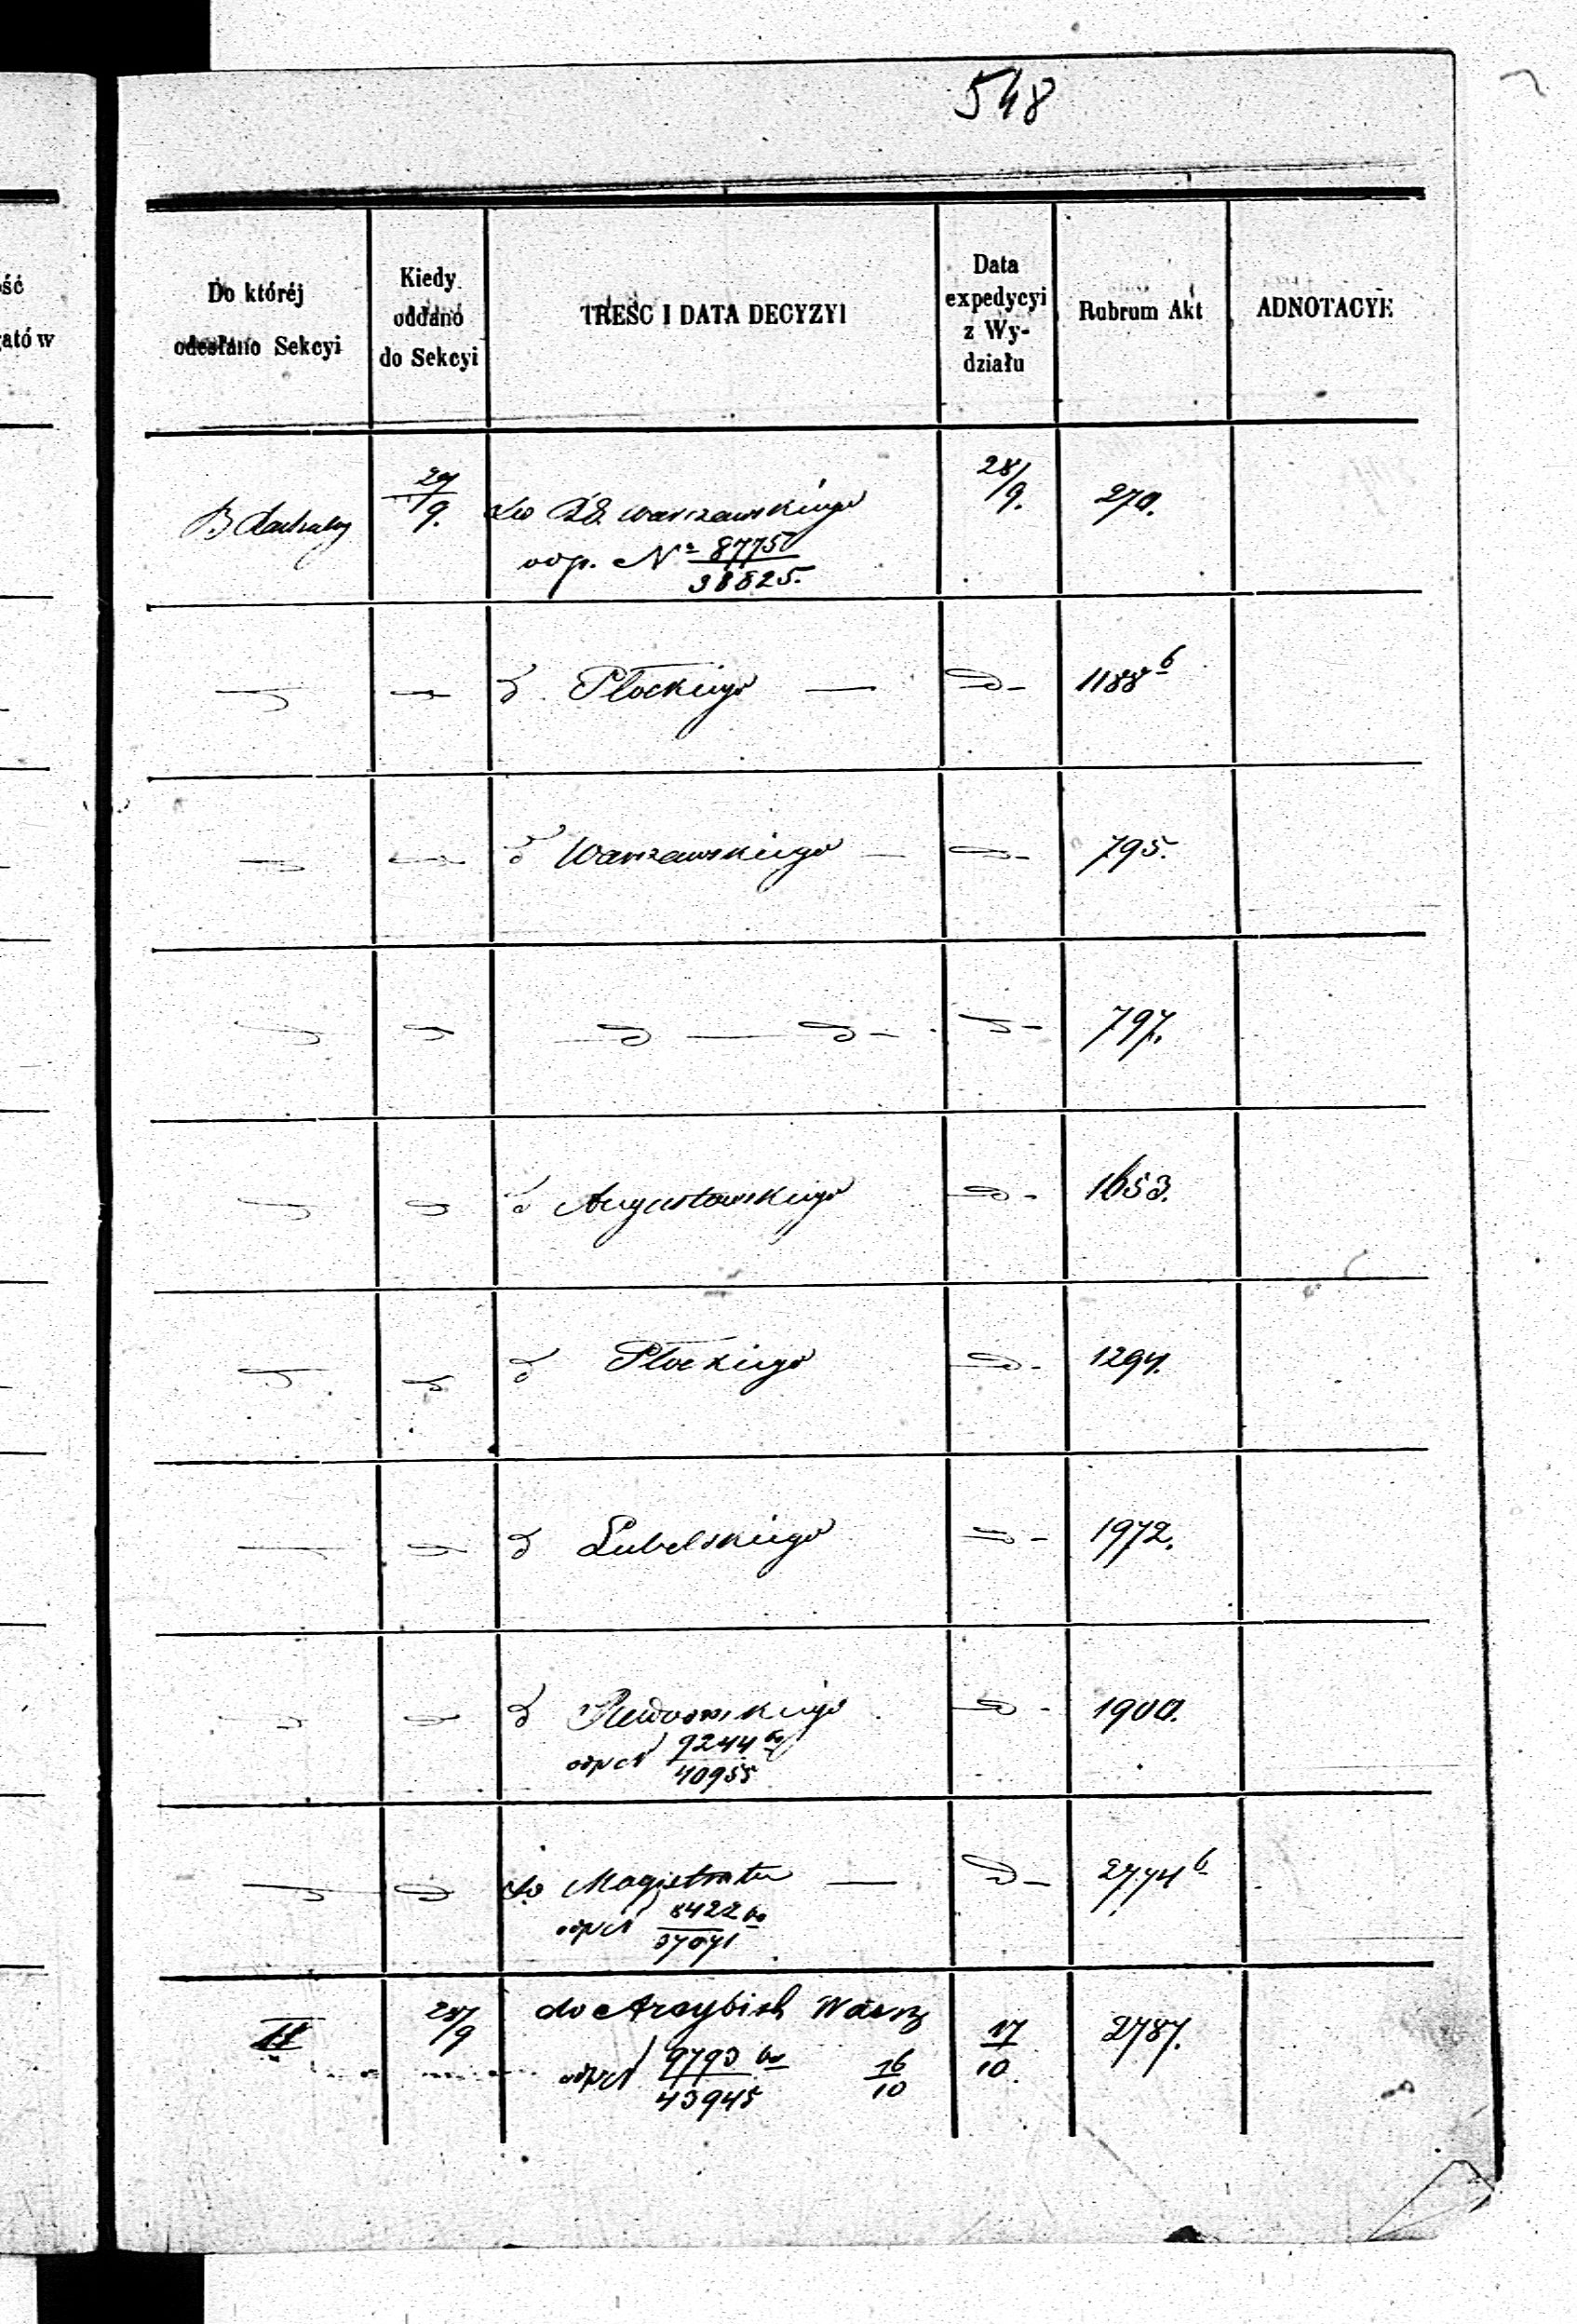 548
ość
atów
Do któréj
odesłano Sekcyi
Kiedy
oddano
do Sekcyi
TREŚC I DATA DECYZYI
Data
expedycyi
z Wy-
działu
Rubrum Akt
ADNOTACYE
B
29/9.
do RG. Warszawskiego
odp. N° 8775/38825.
28/9.
270.
d° Płockiego —
1188 b
d° Warszawskiego —
795.
797.
d° Augustowskiego
1653.
d° Płockiego
1294.
d° Lubelskiego
1972.
d°
odp N 9244/40955
1900.
do Magistratu —
odp N 8422/37071
2774 b
II
28/9
do Arcybisk Warsz
odp N 9793/43945 16/10
17/10.
2787.